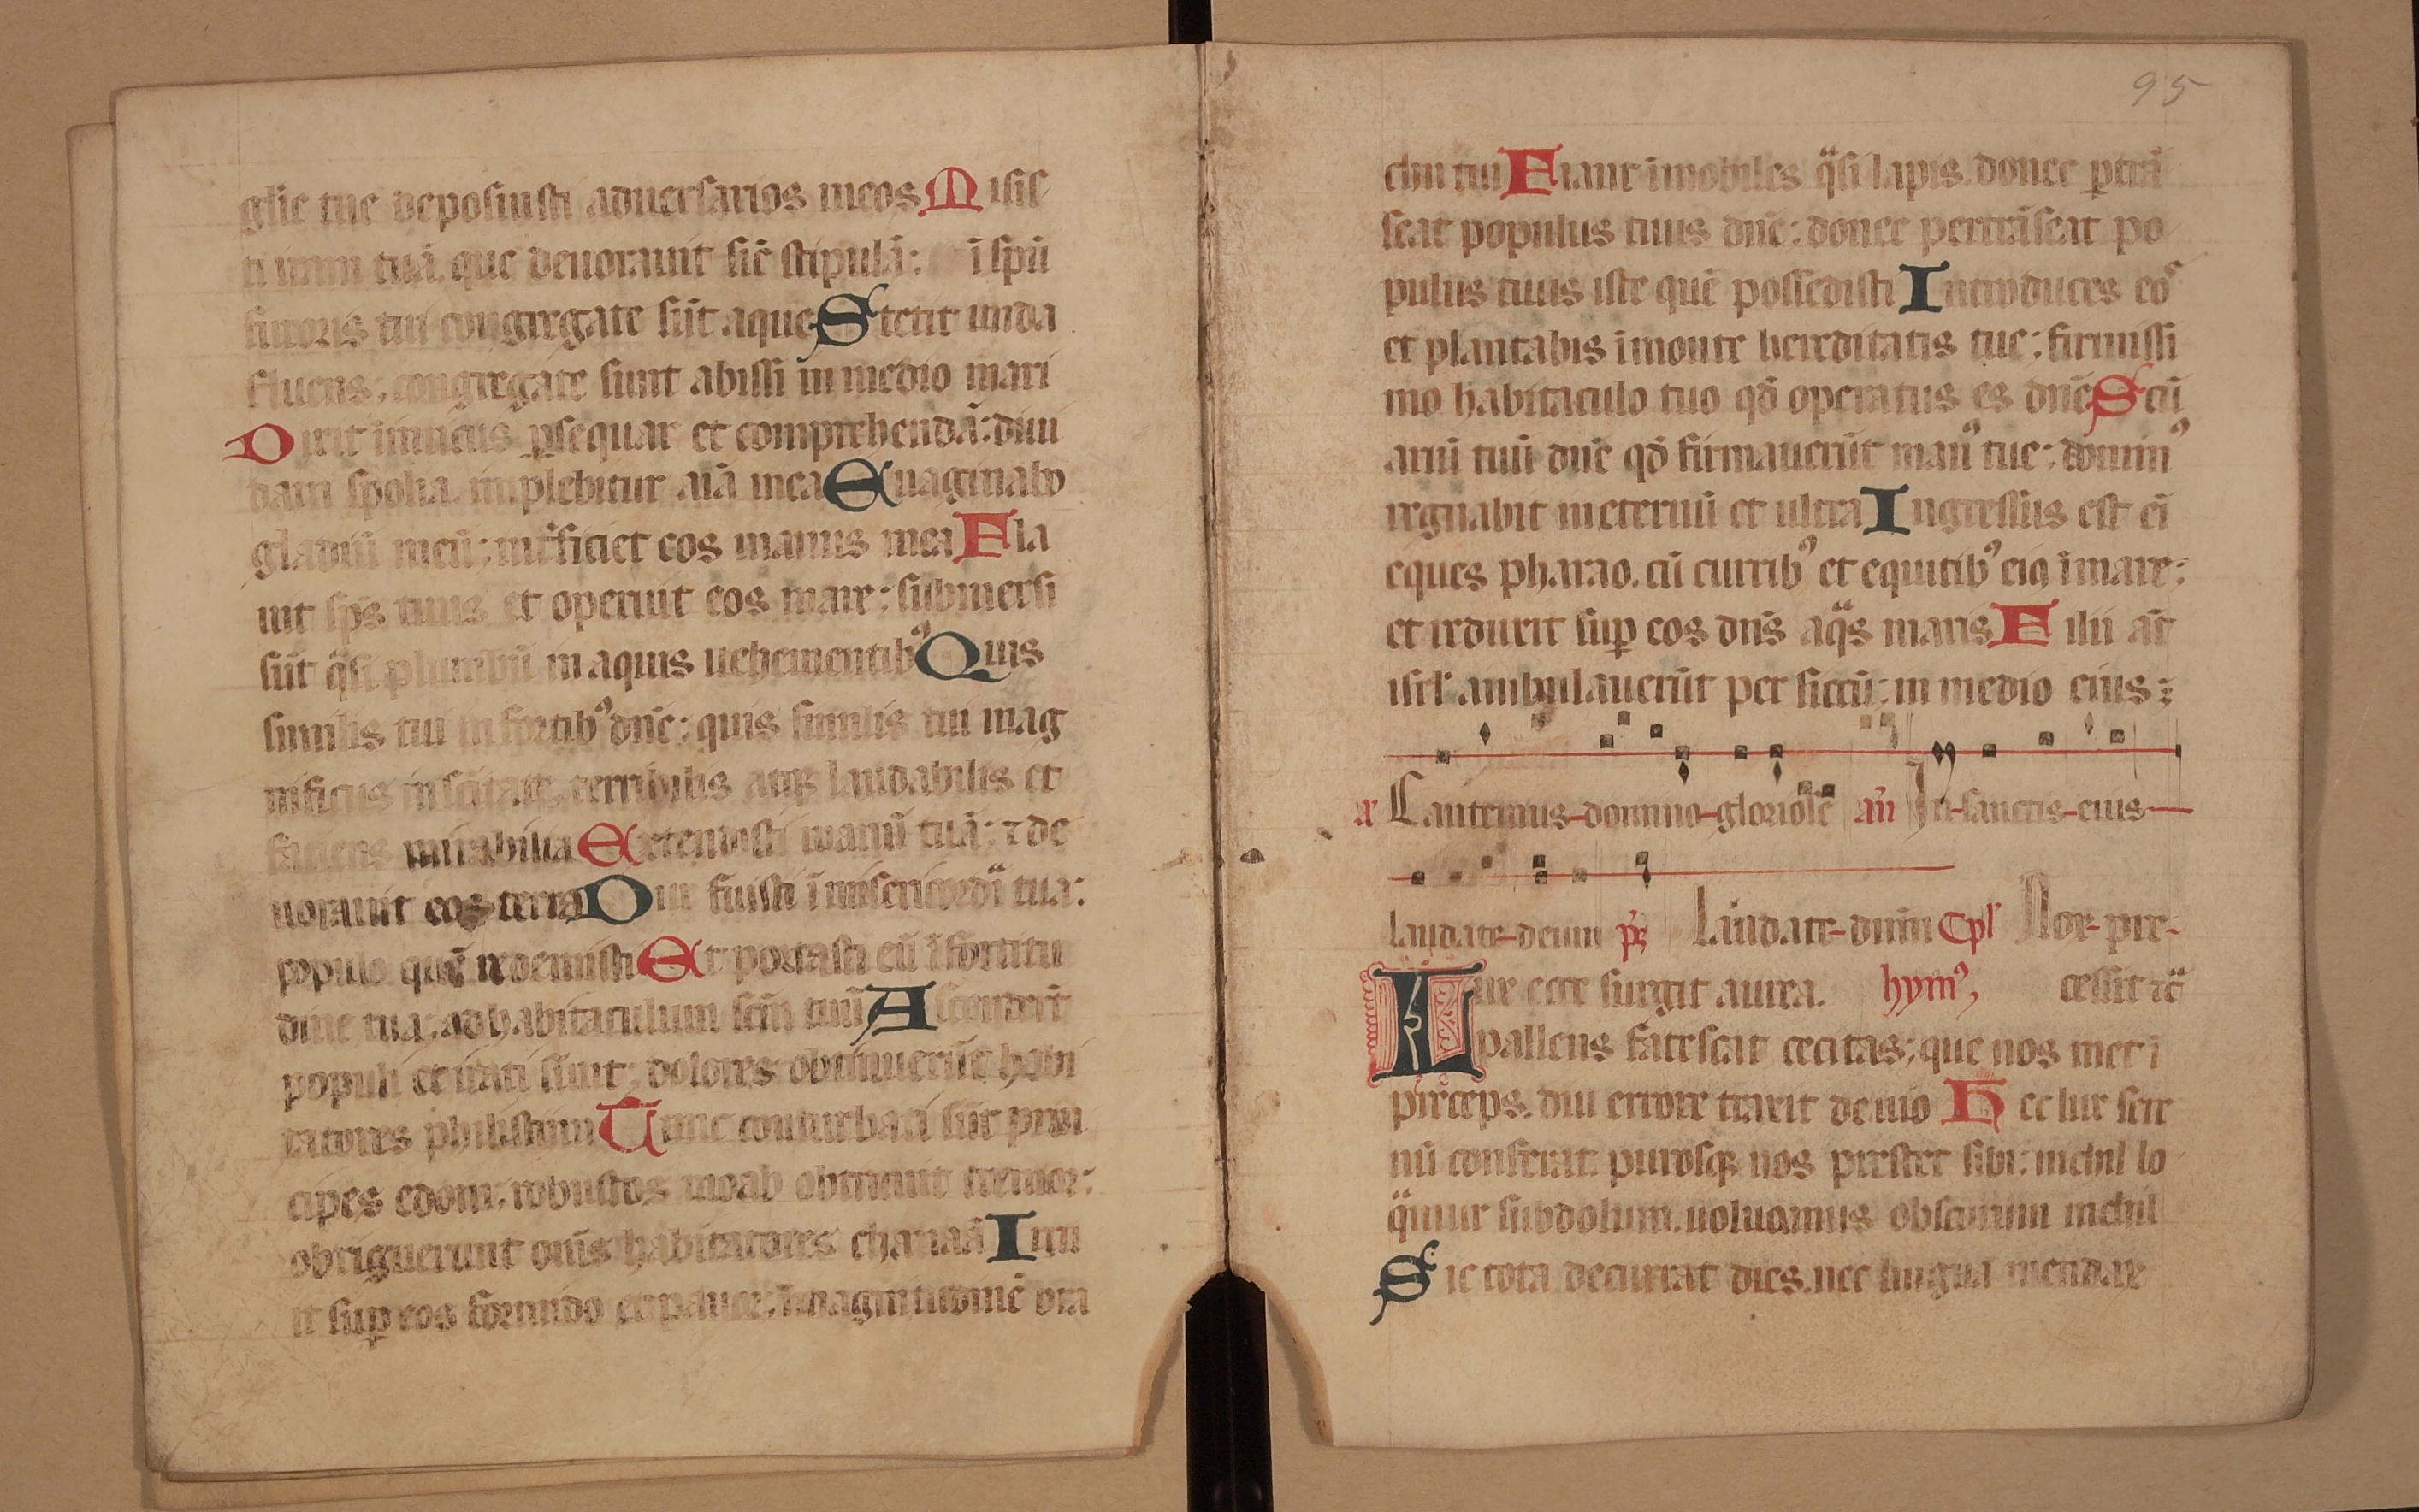 gl̄ie tue deposuisti aduersarios meos Misis
ti iram tuā. que deuorauit sic̄ stipulā: ī sp̄u
furoris tui congregate sūt aque Stetit unda
fluens; congregate sunt abissi in medio mari
Dixit inimicus ꝑsequar et comprehendā: diui
dam spolia. implebitur aīa mea Euaginabo
gladiū meū; int̄ficiet eos manus mea Fla
uit sp̄s tuus et operuit eos mare: submersi
sūt q̈si plumbū in aquis uehementibꝰ Quis
similis tui in fortibꝰ dn̄e: quis similis tui mag
nificus in sc̄itate. terribilis atqꝫ laudabilis et
faciens mirabilia Extendisti manū tuā: ⁊ de
uorauit eos terra Dux fuisti ī misericordı̈ tua:
populo quē redemisti Et portasti eū ī fortitu
dine tua: ad habitaculum sc̄m tuū Ascendert̄
populi et irati sunt: dolores obtinuerūt habi
tatores philistiim Tunc conturbati sūt prin
cipes edom: robustos moab obtinuit tremor:
obriguerunt om̄s habitatores chanaā Irru
it suꝑ eos formido et pauor. ī magnitudinē bra
95
chii tui Fiant īmobiles q̈si lapis. donec ꝑtrā
seat populus tuus dn̄e: donec pertrāseat po
pulus tuus iste quē possedisti Introduces eoˢ
et plantabis ī monte hereditatis tue: firmissi
mo habitaculo tuo qd̄ operatus es dn̄e Sctū
ariū tuū dn̄e qd̄ firmauerūt manꝰ tue: dominꝰ
regnabit ineternū et ultra Ingressus est eī
eques pharao. cū curribꝰ et equitibꝰ eiꝰ ī mare:
et reduxit suꝑ eos dn̄s aq̈s maris Filii āt
isrl' ambulauerūt per siccū: in medio eius:
Cantemus-domino-gloriose an̄ In-sanctis-eius
laudate-deum p̄s Laudate-dn̄m Cpl' Nox-pre-
Lux ecce surgit aurea. hymꝰ, cessit ⁊c̈
pallens fatescat cecitas; que nos met ī
preceps. diu errore traxit deuio Hec lux sere
nū conferat: purosqꝫ nos prestet sibi: nichil lo
q̈mur subdolum. uoluamus obscurum nichil
Sic tota decurrat dies. nec lingua mendax